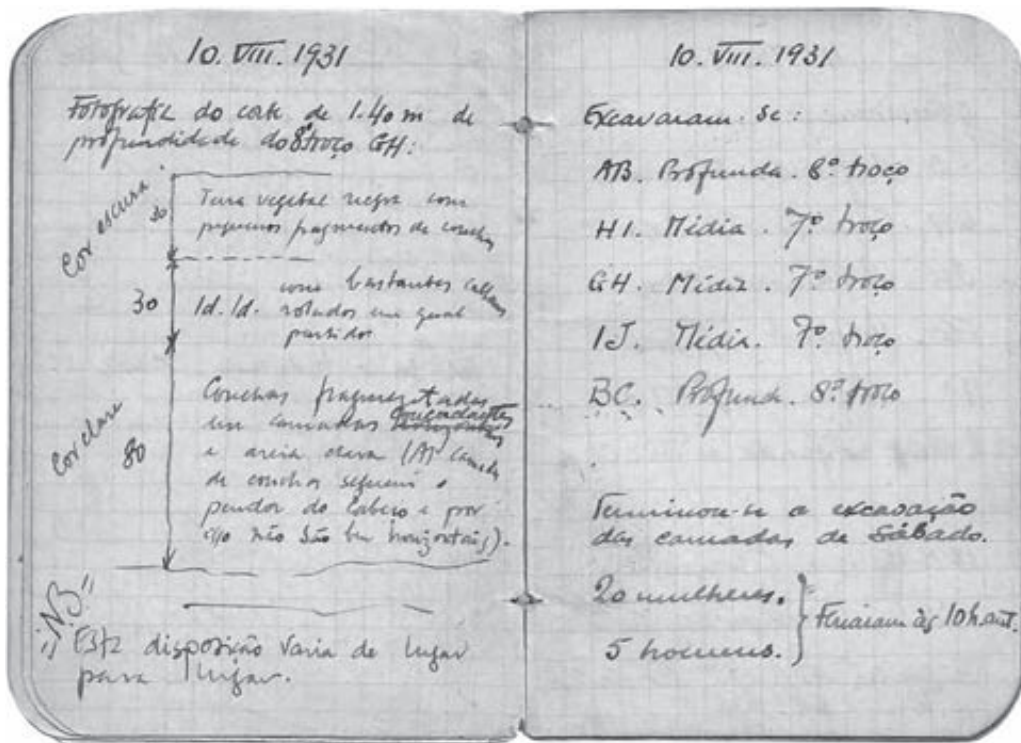 10. VIII. 1931
Fotografia do corte de 1.40 m de
profundidade do 8º troço GH:
Cor escura
30
Terra vegetal negra com
pequenos fragmentos de conchas
30
Id. Id. com bastantes calhaus
rolados em geral
partidos
Cor clara
80
Conchas fragmentadas
em camadas
e areia clara (As camadas
de conchas seguem o
pendor do Cabeço e por
isso não são bem horizontais).
"NB"
Esta disposição varia de lugar
para lugar.
10. VIII. 1931
Excavaram-se:
AB. Profunda. 8º troço
HI. Média. 7º troço
GH. Média. 7º troço
IJ. Média. 7º troço
BC. Profunda. 8º troço
Terminou-se a excavação
das camadas de Sábado.
20 mulheres.
5 homens.
às 10h.